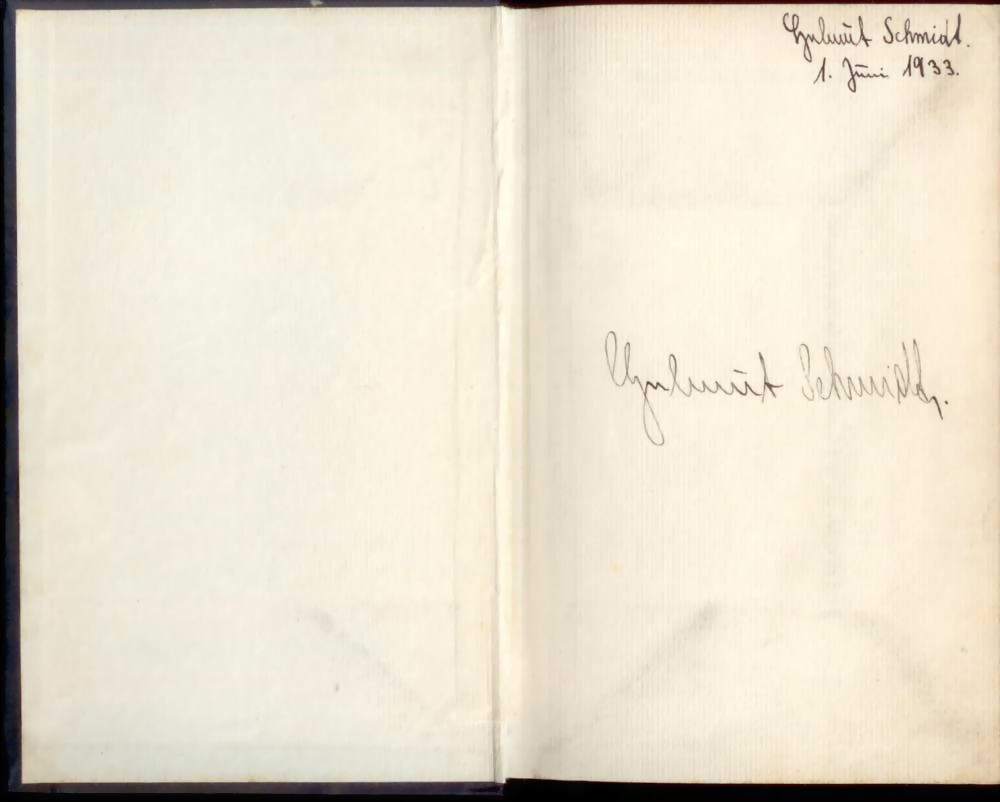 Helmut Schmidt.
1. Juni 1933.
Helmut Schmidt.